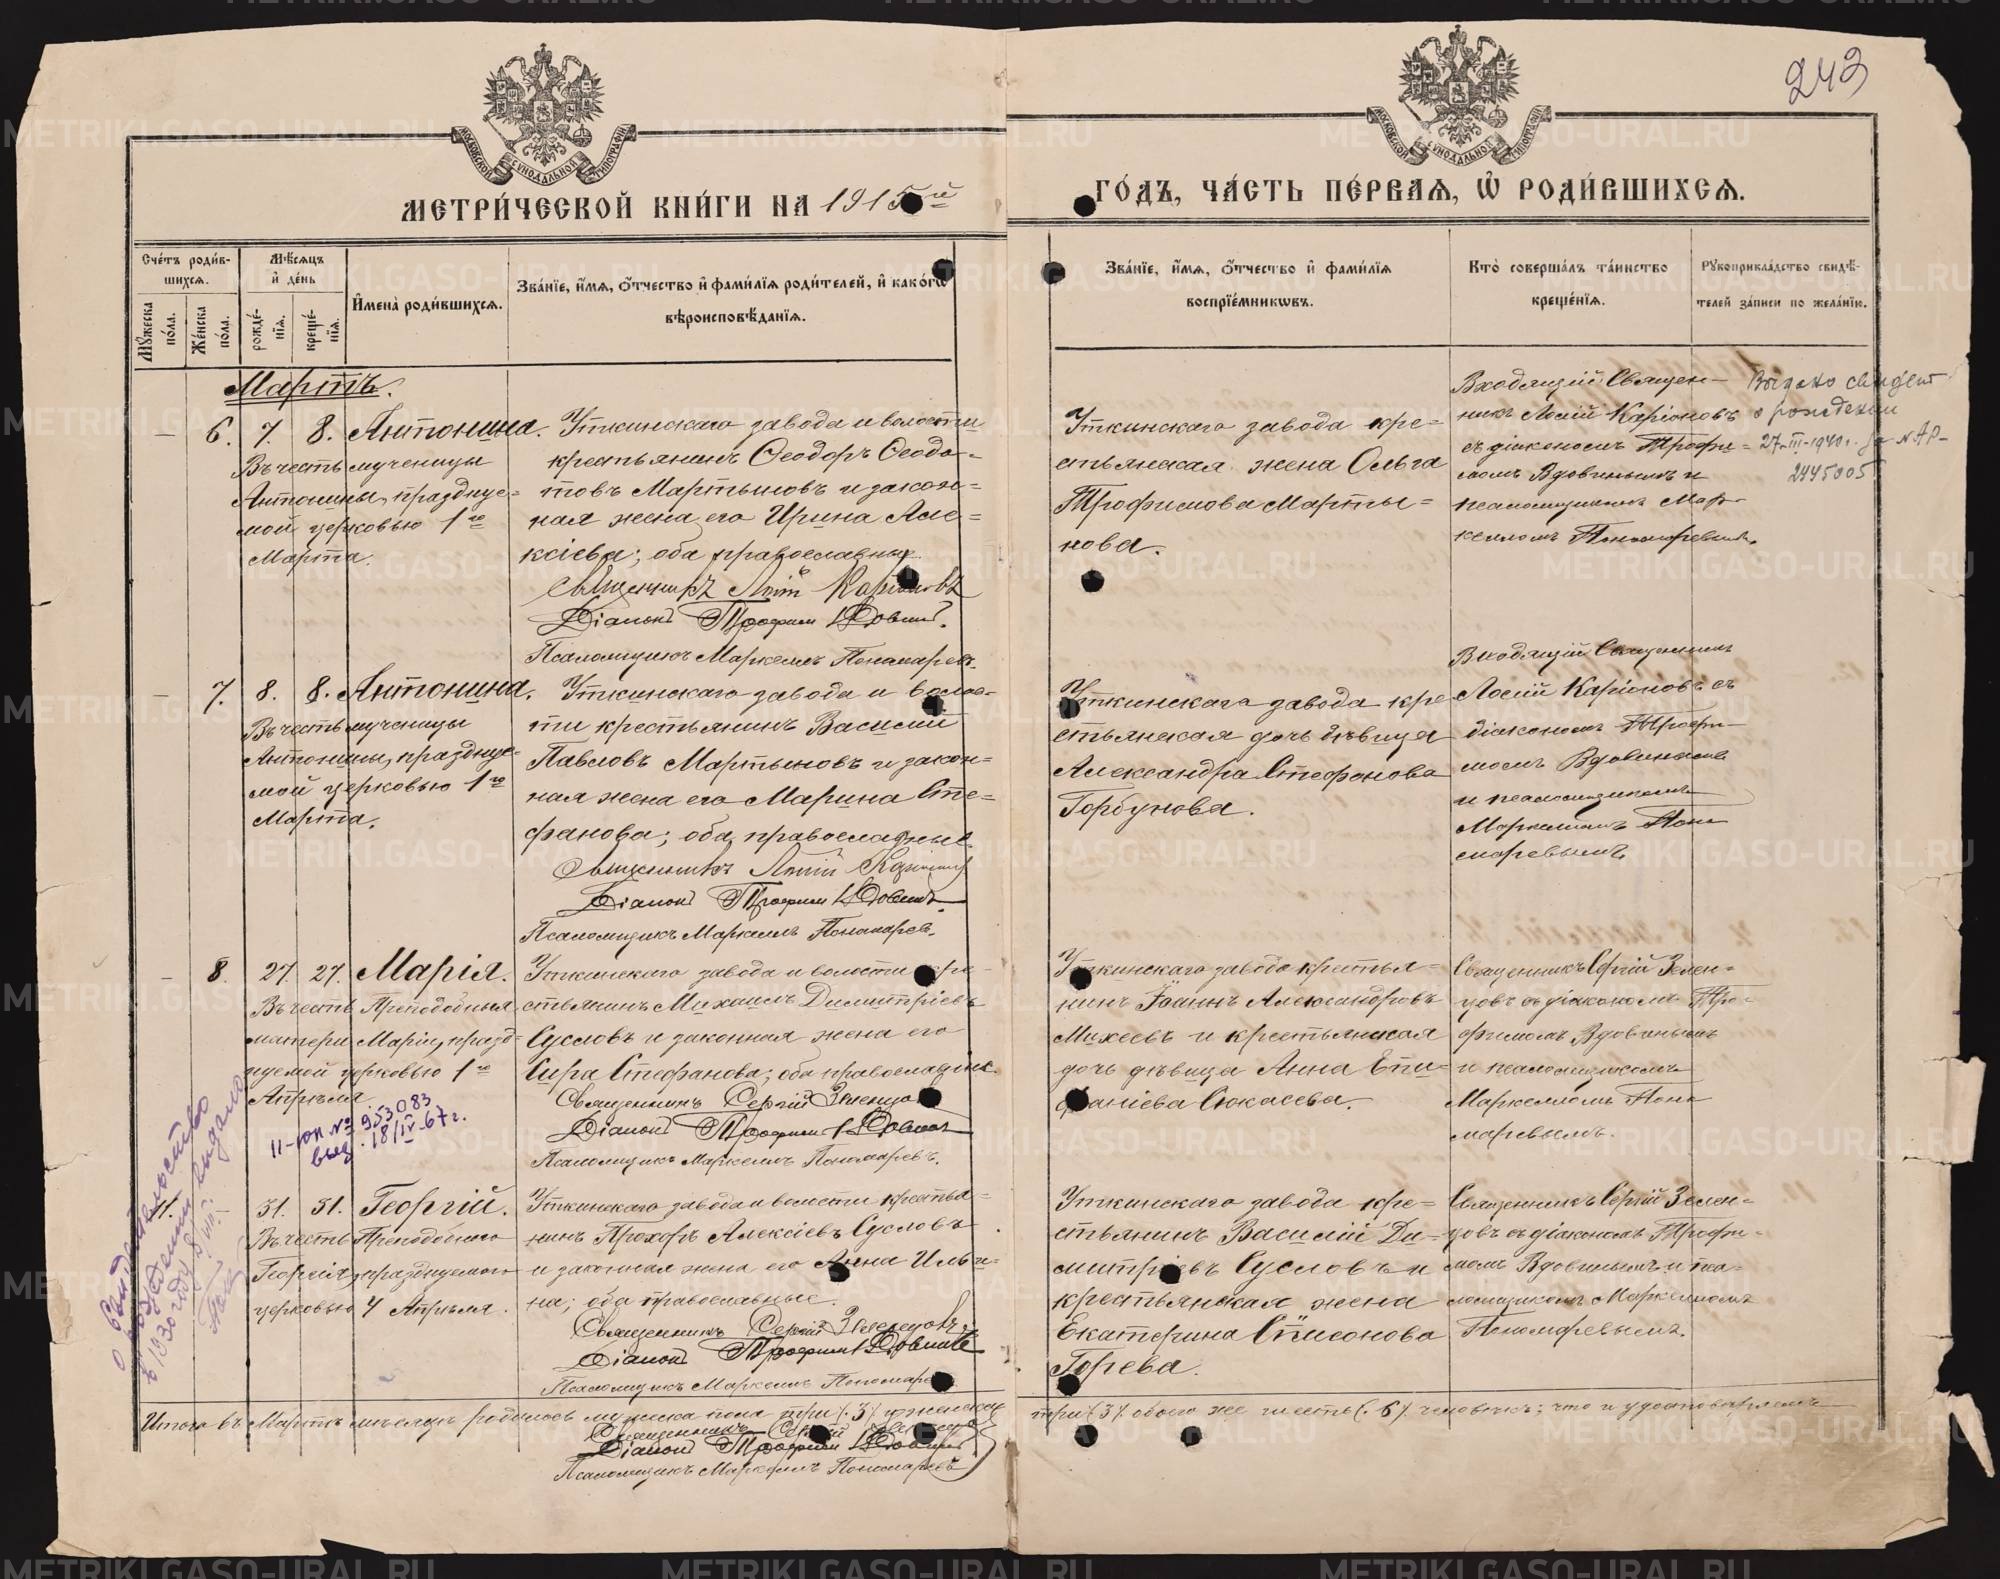 243
МОСКОВСКОЙ СѴНОДАЛЬНОЙ ТИПОГРАФІИ
МЕТРИ́ЧЕСКОЙ КНИ́ГИ НА 1915й
МОСКОВСКОЙ СѴНОДАЛЬНОЙ ТИПОГРАФІИ
ГО́ДЪ, ЧА́СТЬ ПЕ́РВАЯ, Ѡ РОДИ́ВШИХСЯ.
Сче́тъ роди́в-
шихся.
Мѹ́жеска по́ла.
Же́нска по́ла.
Мѣ́сяцъ
и́ де́нь
рожде́-
нїя.
креще́-
нїя.
И҆мена̀ роди́вшихся.
Зва́нїе, и҆́мя, ѻ҆́тчество и҆ фами́лїя роди́телей, и҆ како́гѡ
вѣроисповѣ́данїя.
Зва́нїе, и҆́мя, ѻ҆́тчество и҆ фами́лїя
воспрїе́мникѡвъ.
Кто̀ соверша́лъ та́инство
креще́нїя.
Рѹкоприкла́дство свидѣ́-
телей за́писи по жела́нїю.
Мартъ.
— 6. 7. 8. Антонина.
Въ честь мученицы
Антонины, празднуе-
мой церковью 1го
Марта.
Уткинскаго завода и волости
крестьянинъ Ѳеодоръ Ѳеодо-
товъ Мартыновъ и закон-
ная жена его Ирина Але-
ксіева; оба православны.
Священникъ Каріоновъ
Діаконъ Трофим Вдовинъ.
Псаломщикъ Маркеллъ Пономаревъ.
Уткинскаго завода кре-
стьянская жена Ольга
Трофимова Марты-
нова.
Входящій Священ-
никъ Каріоновъ
съ діакономъ Трофи-
момъ Вдовинымъ и
псаломщикомъ Мар-
келломъ Пономаревымъ.
Выдано свидет
о рождении
27-III-1940г. за № АР-
2445005
— 7. 8. 8. Антонина.
Въ честь мученицы
Антонины, празднуе-
мой церковью 1го
Марта.
Уткинскаго завода и волос-
ти крестьянинъ Василій
Павловъ Мартыновъ и закон-
ная жена его Марина Сте-
фанова; оба православные.
Священникъ
Діаконъ Трофим Вдовинъ.
Псаломщикъ Маркеллъ Пономарев.
Уткинскаго завода кре
стьянская дочь дѣвица
Александра Стефонова
Горбунова.
Входящій Священникъ
Каріоновъ съ
діакономъ Трофи-
момъ Вдовинымъ
и псаломщикомъ
Маркелломъ Поно
маревымъ.
— 8. 27. 27. Марія.
Въ честь Преподобныя
матери Маріи, празд-
нуемой церковью 1го
Апрѣля.
II-юп № 953083
выд. 18/IV-67 г.
Уткинскаго завода и волости кре-
стьянинъ Михаилъ Димитріевъ
Сусловъ и законная жена его
Кира Стефанова; оба православные.
Священникъ Сергій Зеленцов
Діаконъ Трофим Вдовинъ
Псаломщикъ Маркеллъ Пономаревъ.
Уткинскаго завода крестья-
нинъ Іоаннъ Александровъ
Михеевъ и крестьянская
дочь дѣвица Анна Епи-
фаніева Сюкасева.
Священникъ Сергій Зелен-
цовъ съ діакономъ Тро-
фимомъ Вдовинымъ
и псаломщикомъ
Маркелломъ Поно
маревымъ.
31. 31. Георгій.
Въ честь Преподобнаго
Георгія, празднуемаго
церковью 4 Апрѣля.
Свидетельство
о рождении выдано
в 1930 году
Уткинскаго завода и волости крестья-
нинъ Прохоръ Алексіевъ Сусловъ
и законная жена его Анна Ильи-
на; оба православные.
Священникъ Сергій Зеленцовъ
Діаконъ Трофим Вдовинъ
Псаломщикъ Маркеллъ Пономарев
Уткинскаго завода кре-
стьянинъ Василій Ди-
митріевъ Сусловъ и
крестьянская жена
Екатерина Спиридонова
Горева.
Священникъ Сергій Зелен-
цовъ съ діакономъ Трофи-
момъ Вдовинымъ и пса-
ломщикомъ Маркелломъ
Пономаревымъ.
Итого въ Мартѣ мѣсяцѣ родилось мужска пола три /.3./ женска
три /.3./, обоего же шесть /.6./ человѣкъ; что и удостовѣряемъ
Священникъ Сергій Зеленцов
Діаконъ Трофим Вдовинъ
Псаломщикъ Маркеллъ Пономаревъ